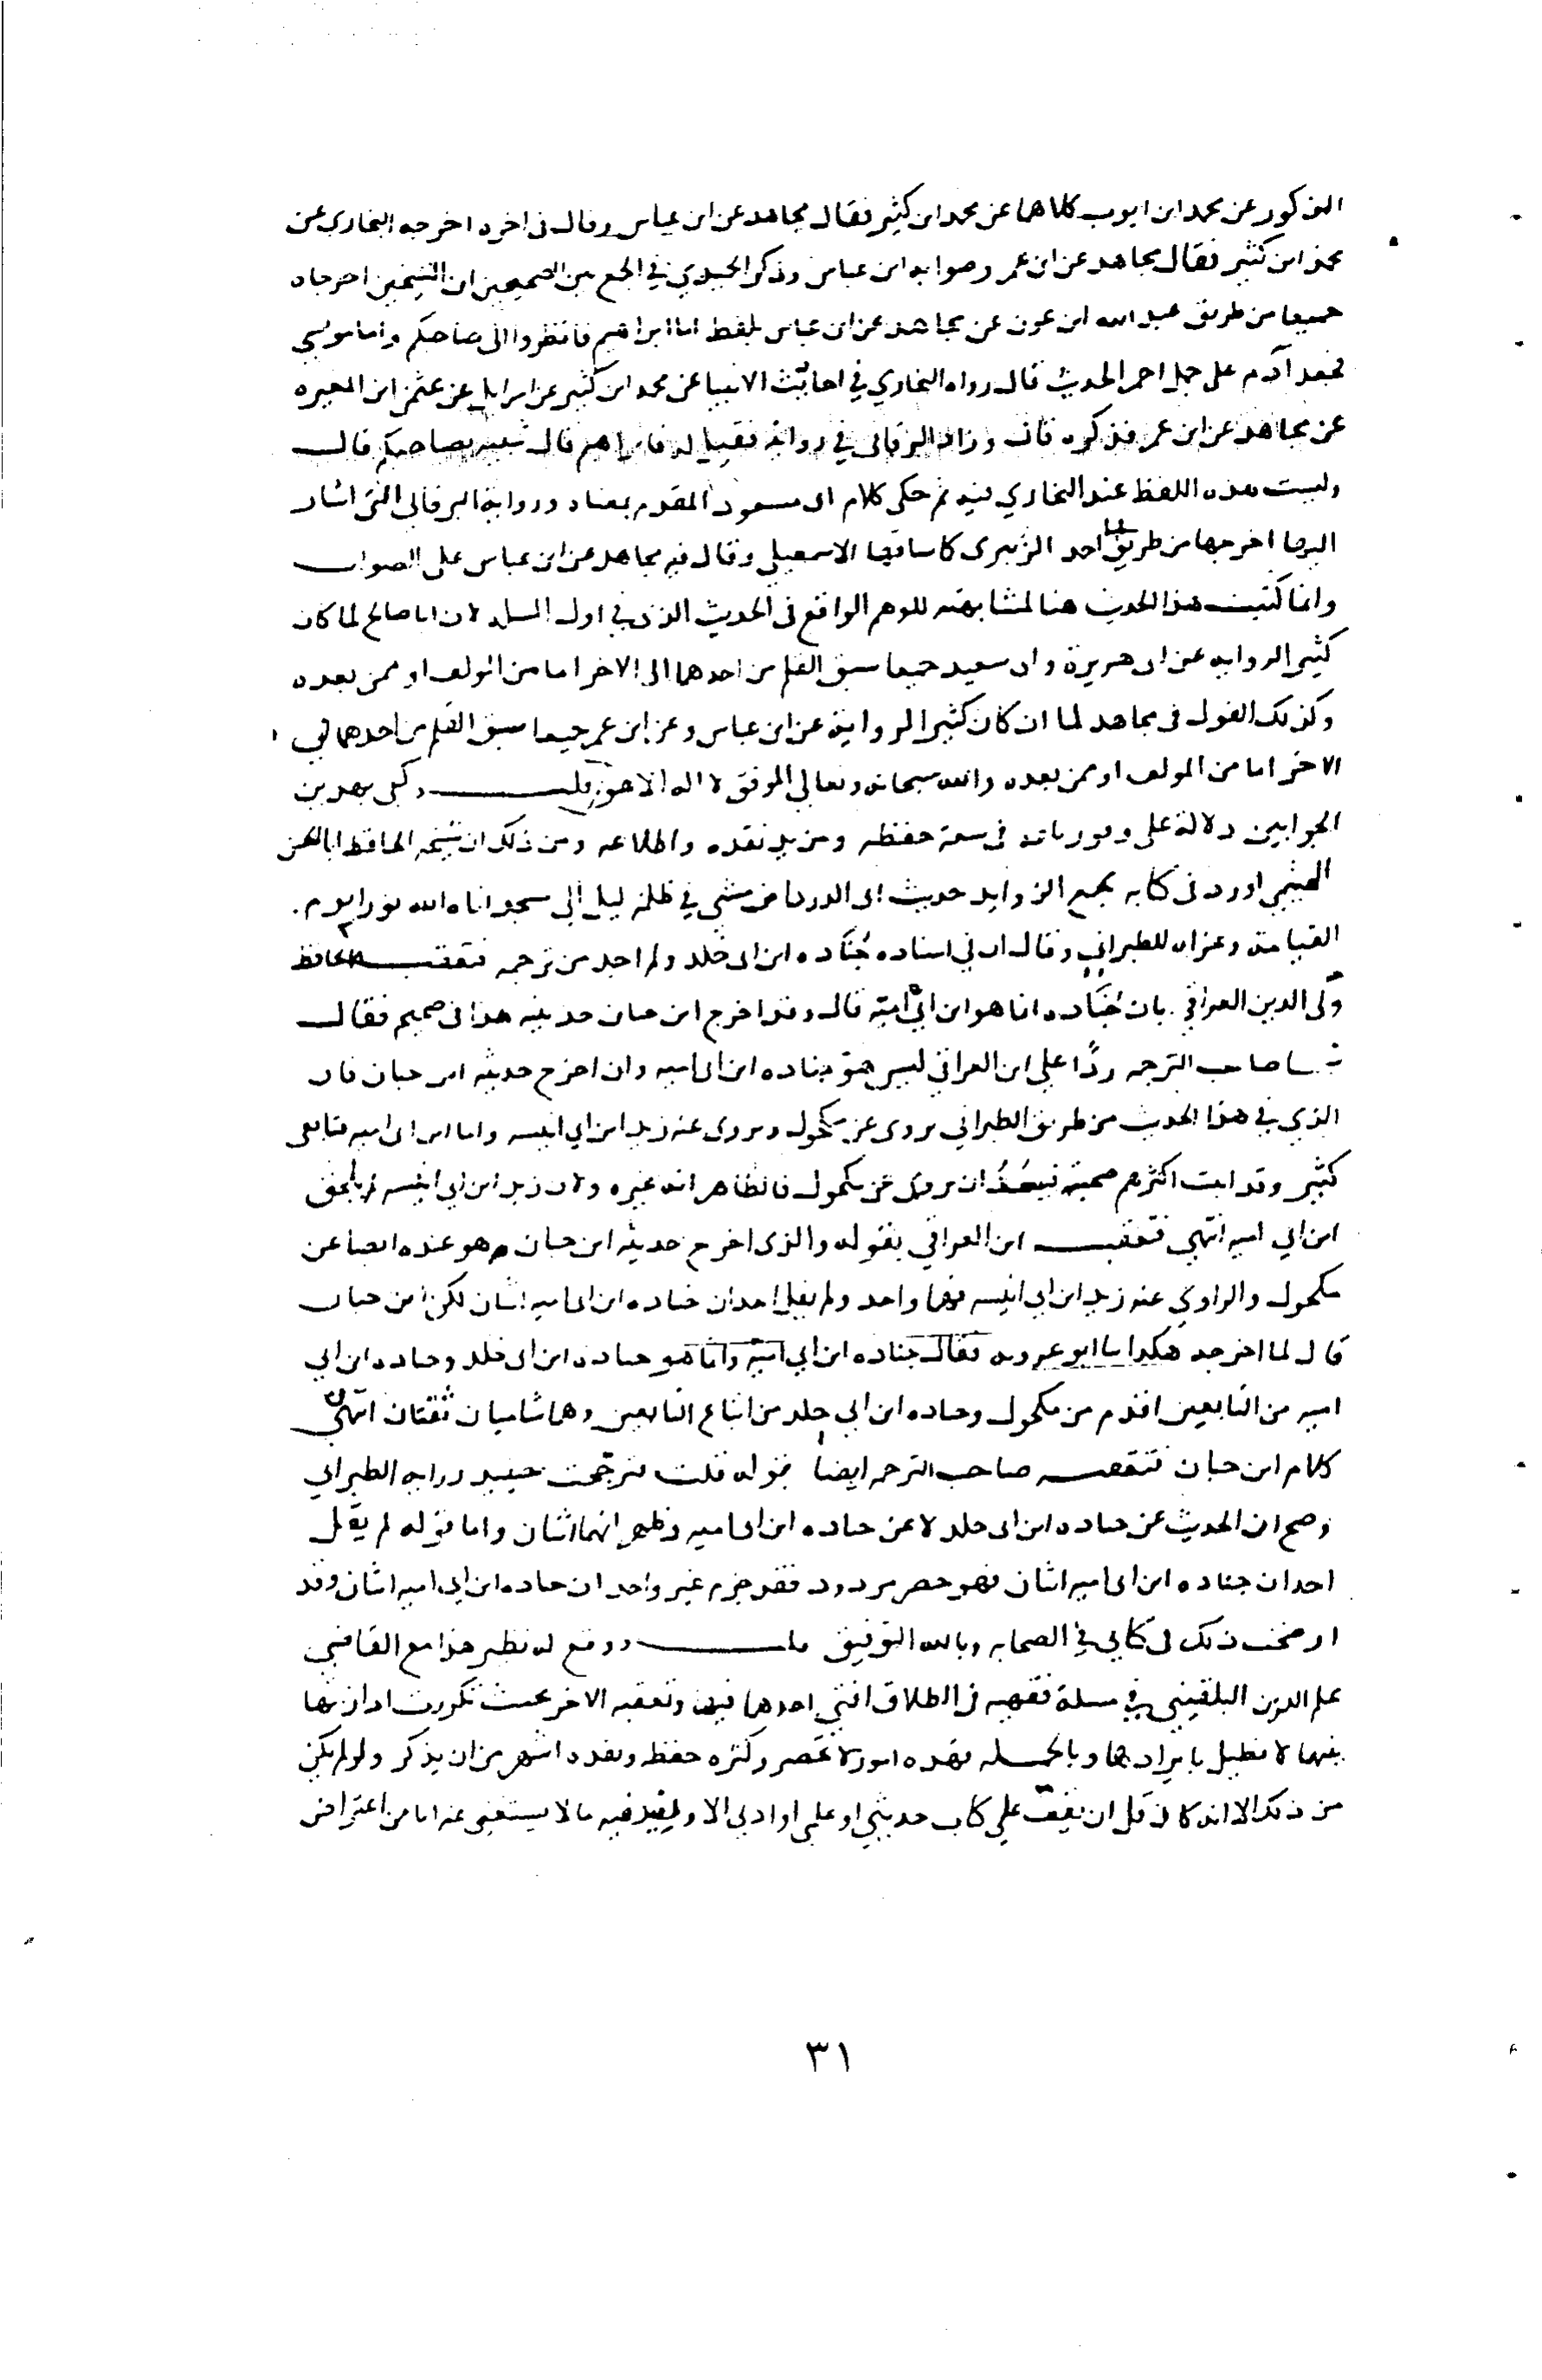 المذكور عن محمد ابن ايوب كلاهما عن محمد ابن كثير فقال مجاهد عن ابن عباس وقال في اخره اخرجه البخاري عن
محمد ابن كثير فقال مجاهد عن ابن عمر وصوابه ابن عباس وذكر الحميدي في الجمع بين الصحيحين ان الشيخين اخرجاه
جميعا من طريق عبد الله ابن عون عن مجاهد عن ابن عباس بلفظ اما ابراهيم فانظروا الى صاحبكم واما موسى
فجعد آدم على جمل احمر الحديث قال رواه البخاري في احاديث الانبيا عن محمد ابن كثير عن اسرايل عن عثمن ابن المغيره
عن مجاهد عن ابن عمر فذكره قال وزاد البرقاني في روايته فقيل له فابراهيم قال شبيه بصاحبكم قال
وليست هذه اللفظه عند البخاري فيه ثم حكى كلام ابي مسعود المقدم بمعناه ورواية البرقاني التي اشار
اليها اخرجها من طريق ابي احمد الزبيري كما ساقها الاسمعيلي وقال فيه مجاهد عن ابن عباس على الصواب
وانما كتبت هذا الحديث هنا لمشابهته للوهم الواقع في الحديث الذي في اول المسله لان ابا صالح لما كان
كثير الروايه عن ابي هريرة وابي سعيد جميعا سبق القلم من احدهما الى الاخر اما من المولف او ممن بعده
وكذلك القول في مجاهد لما ان كان كثير الرواية عن ابن عباس وعن ابن عمر جميعا سبق القلم من احدهما الي
الاخر اما من المولف او ممن بعده والله سبحانه وتعالى الموفق لا اله الا هو قلت وكفى بهذين
الجوابين دلالة على وفور مادته في سعة حفظه ومزيد نقده واطلاعه ومن ذلك ان شيخه الحافظ ابا الحسن
الهيثمي اورد في كتابه مجمع الزوايد حديث ابي الدردا من مشى في ظلمة ليل الى مسجد اتاه الله نورا يوم
القيامة وعزاه للطبراني وقال ان في اسناده جُنَاده ابن ابي خلد ولم اجد من ترجمه فتعقبه الحافظ
ولى الدين العراقي بان جُنَاده انما هو ابن ابي امية قال وقد اخرج ابن حبان حديثه هذا في صحيحه فقال
صاحب الترجمه ردًا على ابن العراقي ليس هو جناده ابن ابي اميه وان اخرج حديثه ابن حبان فان
الذي في هذا الحديث من طريق الطبراني يروى عن مكحول ويروى عنه زيد ابن ابي انيسه واما ابن ابي اميه فتابعى
كبير وقد اثبت اكثرهم صحبته فيبعُدُ ان يروى عن مكحول فالظاهر انه غيره ولان زيد ابن ابي انيسه لم يلحق
ابن ابي اميه انتهى فتعقبه ابن العراقي بقوله والذى اخرج حديثه ابن حبان هو عنده ايضا عن
مكحول والراوي عنه زيد ابن ابي انيسه فهما واحد ولم يقل احد ان جناده ابن ابي اميه اثنان لكن ابن حبان
قال لما اخرجه هكذا ثنا ابو عروبه فقال جناده ابن ابي امية وانما هو جناده ابن ابي خلد وجناده ابن ابي
اميه من التابعين اقدم من مكحول وجناده ابن ابي خلد من اتباع التابعين وهما شاميان ثقتان انتهى
كلام ابن حبان فتعقبه صاحب الترجمه ايضا بقوله قلت فترجحت حينيذ روايه الطبراني
وصح ان الحديث عن جناده ابن ابي خلد لا عن جناده ابن ابي اميه وظهر انهما اثنان واما قوله لم يقل
احد ان جناده ابن ابي اميه اثنان فهو حصر مردود فقد جزم غير واحد ان جناده ابن ابي اميه اثنان وقد
اوضحت ذلك في كتابي في الصحابه وبالله التوفيق قلت ووقع له نظير هذا مع القاضي
علم الدين البلقيني في مسلة فقهيه في الطلاق افتى احدهما فيها وتعقبه الاخر بحيث تكررت
بينهما لا نطيل بايرادها وبالجمله فهذه امور لا تحصر وكثره حفظه ونقده اشهر من ان يذكر ولو لم يكن
من ذلك الا انه كان قل ان يقف على كتاب حديثي او علمي او ادبي الا ويفيد فيه ما لا يستغنى عنه اما من اعتراض
٣١